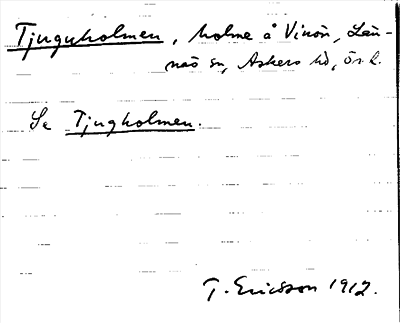 Tjuguholmen, holme å Vinön, Län-
näs sn, Askers hd, Ör. l.
Se Tjugholmen.
T. Ericsson 1912.